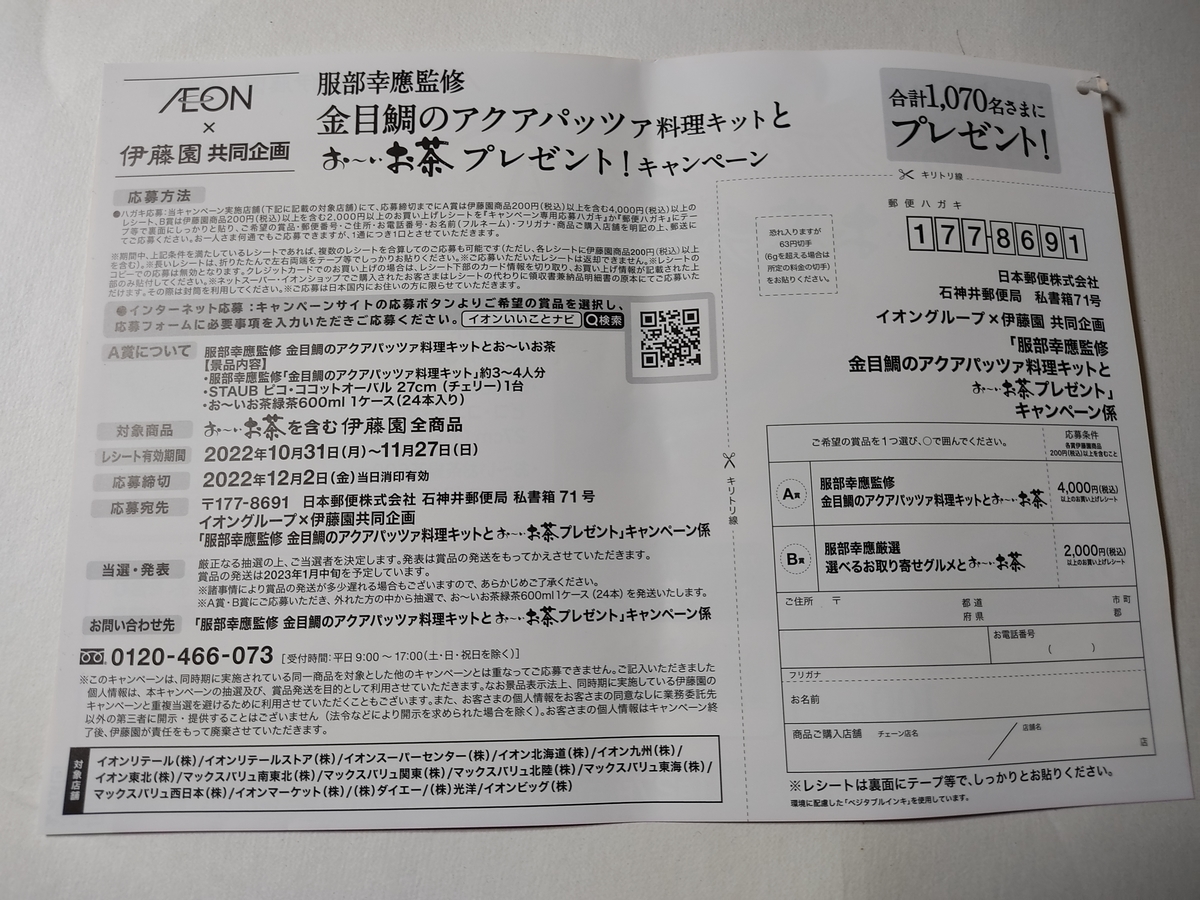 ÆON
×
伊藤園 共同企画
服部幸應監修
金目鯛のアクアパッツァ料理キットと
お〜いお茶 プレゼント!キャンペーン
合計1,070名さまに
プレゼント!
応募方法
●ハガキ応募:当キャンペーン実施店舗(下記に記載の対象店舗)にて、応募締切までにA賞は伊藤園商品200円(税込)以上を含む4,000円(税込)以上の
レシート、B賞は伊藤園商品200円(税込)以上を含む2,000円以上のお買い上げレシートを『キャンペーン専用応募ハガキ』か『郵便ハガキ』にテー
プ等で裏面にしっかりと貼り、ご希望の賞品・郵便番号・ご住所・お電話番号・お名前(フルネーム)・フリガナ・商品ご購入店舗を明記の上、郵送に
てご応募ください。お一人さま何通でもご応募できますが、1通につき1口とさせていただきます。
※期間中、上記条件を満たしているレシートであれば、複数のレシートを合算してのご応募も可能です(ただし、各レシートに伊藤園商品200円(税込)以上
を含む)。※長いレシートは、折りたたんで左右両端をテープ等でしっかりお貼りください。※ご応募いただいたレシートは返却できません。※レシートの
コピーでの応募は無効となります。クレジットカードでのお買い上げの場合は、レシート下部のカード情報を切り取り、お買い上げ情報が記載された上
部のみ貼付してください。※ネットスーパー・イオンショップでご購入されたお客さまはレシートの代わりに領収書兼納品明細書の原本にてご応募いた
だけます。その際は封筒を利用してください。※ご応募は日本国内にお住いの方に限らせていただきます。
●インターネット応募:キャンペーンサイトの応募ボタンよりご希望の賞品を選択し、
応募フォームに必要事項を入力いただきご応募ください。 イオンいいことナビ 検索
A賞について
服部幸應監修 金目鯛のアクアパッツァ料理キットとお〜いお茶
【景品内容】
・服部幸應監修「金目鯛のアクアパッツァ料理キット」約3〜4人分
・STAUB ピコ・ココットオーバル 27cm (チェリー)1台
・お〜いお茶緑茶600ml 1ケース(24本入り)
対象商品 お〜いお茶を含む伊藤園全商品
レシート有効期間 2022年10月31日(月)〜11月27日(日)
応募締切 2022年12月2日(金)当日消印有効
応募宛先 〒177-8691 日本郵便株式会社 石神井郵便局 私書箱71号
イオングループ×伊藤園共同企画
「服部幸應監修 金目鯛のアクアパッツァ料理キットとお〜いお茶プレゼント」キャンペーン係
当選・発表
厳正なる抽選の上、ご当選者を決定します。発表は賞品の発送をもってかえさせていただきます。
賞品の発送は2023年1月中旬を予定しています。
※諸事情により賞品の発送が多少遅れる場合もございますので、あらかじめご了承ください。
※A賞・B賞にご応募いただき、外れた方の中から抽選で、お〜いお茶緑茶600ml1ケース(24本)を発送いたします。
お問い合わせ先 「服部幸應監修 金目鯛のアクアパッツァ料理キットとお〜いお茶プレゼント」キャンペーン係
0120-466-073 [受付時間:平日9:00〜17:00(土・日・祝日を除く)]
※このキャンペーンは、同時期に実施されている同一商品を対象とした他のキャンペーンとは重ねてご応募できません。ご記入いただきました
個人情報は、本キャンペーンの抽選及び、賞品発送を目的として利用させていただきます。なお景品表示法上、同時期に実施している伊藤園の
キャンペーンと重複当選を避けるために利用させていただくこともございます。また、お客さまの個人情報をお客さまの同意なしに業務委託先
以外の第三者に開示・提供することはございません(法令などにより開示を求められた場合を除く)。お客さまの個人情報はキャンペーン終
了後、伊藤園が責任をもって廃棄させていただきます。
対象店舗
イオンリテール(株)/イオンリテールストア(株)/イオンスーパーセンター(株)/イオン北海道(株)/イオン九州(株)/
イオン東北(株)/マックスバリュ南東北(株)/マックスバリュ関東(株)/マックスバリュ北陸(株)/マックスバリュ東海(株)/
マックスバリュ西日本(株)/イオンマーケット(株)/(株)ダイエー/(株)光洋/イオンビッグ(株)
キリトリ線
キリトリ線
恐れ入りますが
63円切手
(6gを超える場合は
所定の料金の切手)
をお貼りください。
郵便ハガキ
177-8691
日本郵便株式会社
石神井郵便局 私書箱71号
イオングループ×伊藤園 共同企画
「服部幸應監修
金目鯛のアクアパッツァ料理キットと
お〜いお茶プレゼント」
キャンペーン係
ご希望の賞品を1つ選び、○で囲んでください。
応募条件
各賞伊藤園商品
200円(税込)以上を含むこと
A賞
服部幸應監修
金目鯛のアクアパッツァ料理キットとお〜いお茶
4,000円(税込)
以上のお買い上げレシート
B賞
服部幸應厳選
選べるお取り寄せグルメとお〜いお茶
2,000円(税込)
以上のお買い上げレシート
ご住所 〒
都道
府県
市町
郡
お電話番号
( )
フリガナ
お名前
商品ご購入店舗 チェーン店名 店舗名
店
※レシートは裏面にテープ等で、しっかりとお貼りください。
環境に配慮した「ベジタブルインキ」を使用しています。